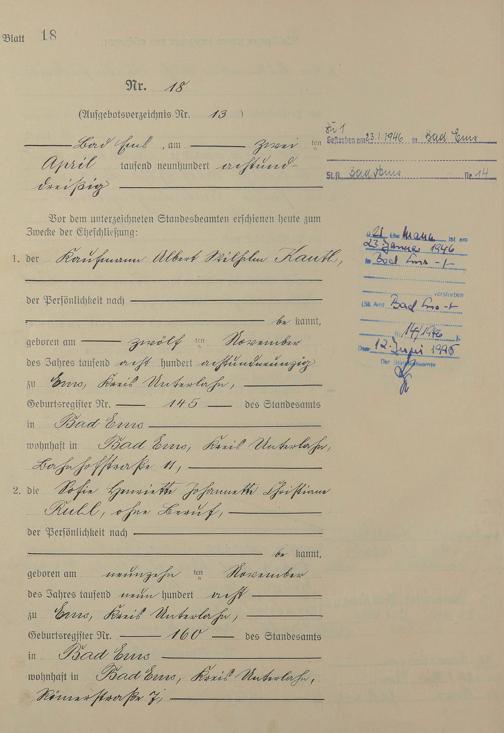 Blatt 18
Nr. 18
(Aufgebotsverzeichnis Nr. 13)
Bad Ems, am zwei ten
April tausend neunhundert achtund-
dreißig
Zu 1
Gestorben am 23.1.1946 in Bad Ems
St.A. Bad Ems Nr. 14
Vor dem unterzeichneten Standesbeamten erschienen heute zum
Zwecke der Eheschließung:
1. der Kaufmann Albert Wilhelm
der Persönlichkeit nach
be kannt,
geboren am zwölf ten November
des Jahres tausend acht hundert achtundneunzig
zu Ems, Kreis Unterlahn,
Geburtsregister Nr. 145 des Standesamts
in Bad Ems
wohnhaft in Bad Ems, Kreis Unterlahn,
Bahnhofstraße 11,
Mann ist am
23 Januar 1946
in Bad Ems
verstorben
Bad Ems
14/1946
12. Juni
2. die Sofie Henriette Johannette Christiane
ohne Beruf,
der Persönlichkeit nach
be kannt,
geboren am neunzehn ten November
des Jahres tausend neun hundert acht
zu Ems, Kreis Unterlahn,
Geburtsregister Nr. 160 des Standesamts
in Bad Ems
wohnhaft in Bad Ems, Kreis Unterlahn,
Römerstraße 7,